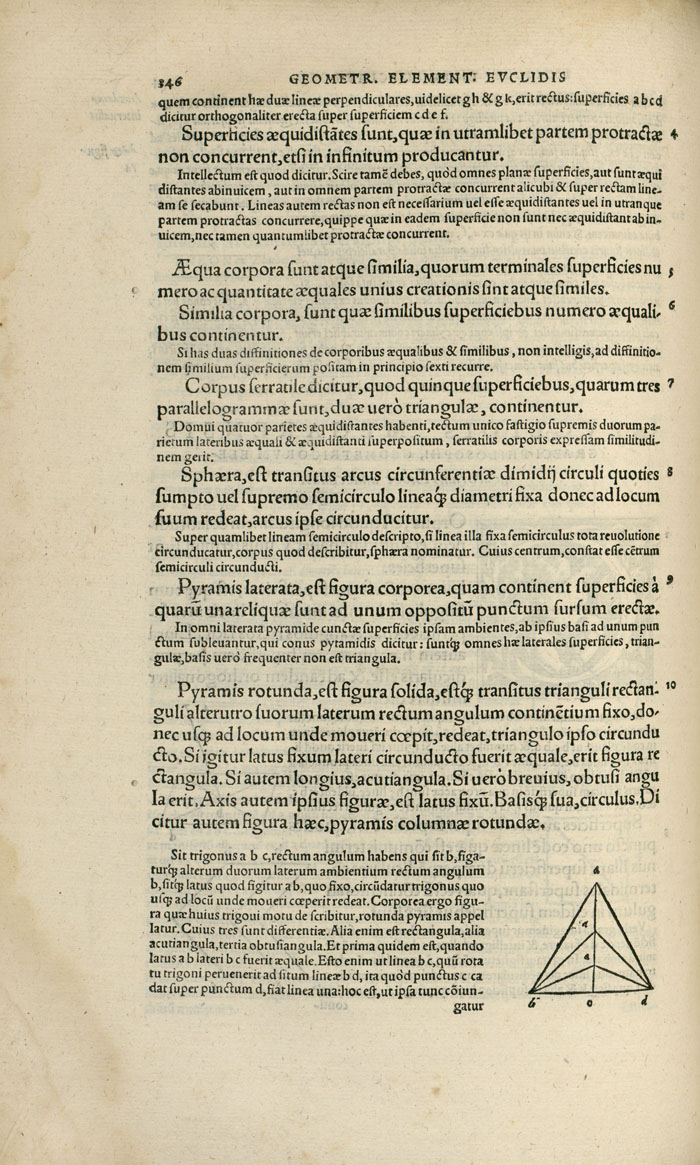 346 GEOMETR. ELEMENT. EVCLIDIS
quem continent hæ duæ lineæ perpendiculares, uidelicet g h & g k, erit rectus: superficies a b c d
dicitur orthogonaliter erecta super superficiem c d e f.
Superficies æquidistātes sunt, quæ in utramlibet partem protractæ 4
non concurrent, etsi in infinitum producantur.
Intellectum est quod dicitur. Scire tamē debes, quòd omnes planæ superficies, aut sunt æqui
distantes abinuicem, aut in omnem partem protractæ concurrent alicubi & super rectam line-
am se secabunt. Lineas autem rectas non est necessarium uel esse æquidistantes uel in utranque
partem protractas concurrere, quippe quæ in eadem superficie non sunt nec æquidistant ab in-
uicem, nec tamen quantumlibet protractæ concurrent.
Æqua corpora sunt atque similia, quorum terminales superficies nu 5
mero ac quantitate æquales unius creationis sint atque similes.
Similia corpora, sunt quæ similibus superficiebus numero æquali- 6
bus continentur.
Si has duas diffinitiones de corporibus æqualibus & similibus, non intelligis, ad diffinitio-
nem similium superficierum positam in principio sexti recurre.
Corpus serratile dicitur, quod quinque superficiebus, quarum tres 7
parallelogrammæ sunt, duæ uerò triangulæ, continentur.
Domui quatuor parietes æquidistantes habenti, tectum unico fastigio supremis duorum pa-
rietum lateribus æquali & æquidistanti superpositum, serratilis corporis expressam similitudi-
nem gerit.
Sphæra, est transitus arcus circunferentiæ dimidij circuli quoties 8
sumpto uel supremo semicirculo lineaq́; diametri fixa donec ad locum
suum redeat, arcus ipse circunducitur.
Super quamlibet lineam semicirculo descripto, si linea illa fixa semicirculus tota reuolutione
circunducatur, corpus quod describitur, sphæra nominatur. Cuius centrum, constat esse cētrum
semicirculi circunducti.
Pyramis laterata, est figura corporea, quam continent superficies à 9
quarū una reliquæ sunt ad unum oppositū punctum sursum erectæ.
In omni laterata pyramide cunctæ superficies ipsam ambientes, ab ipsius basi ad unum pun
ctum subleuantur, qui conus pytamidis dicitur: suntq́; omnes hæ laterales superficies, trian-
gulæ, basis uerò frequenter non est triangula.
Pyramis rotunda, est figura solida, estq́; transitus trianguli rectan- 10
guli alterutro suorum laterum rectum angulum continētium fixo, do-
nec usq́; ad locum unde moueri cœpit, redeat, triangulo ipso circundu
cto. Si igitur latus fixum lateri circunducto fuerit æquale, erit figura re
ctangula. Si autem longius, acutiangula. Si uerò breuius, obtusi angu
la erit. Axis autem ipsius figuræ, est latus fixū. Basisq́; sua, circulus. Di
citur autem figura hæc, pyramis columnæ rotundæ.
Sit trigonus a b c, rectum angulum habens qui sit b, figa-
turq́; alterum duorum laterum ambientium rectum angulum
b, sitq́; latus quod figitur a b, quo fixo, circūdatur trigonus quo
usq́; ad locū unde moueri cœperit redeat. Corporea ergo figu-
ra quæ huius trigoui motu describitur, rotunda pyramis appel
latur. Cuius tres sunt differentiæ. Alia enim est rectangula, alia
acutiangula, tertia obtusiangula. Et prima quidem est, quando
latus a b lateri b c fuerit æquale. Esto enim ut linea b c, quū rota
tu trigoni peruenerit ad situm lineæ b d, ita quòd punctus c ca
dat super punctum d, fiat linea una: hoc est, ut ipsa tunc cōiun-
gatur
a
a
a
b o d